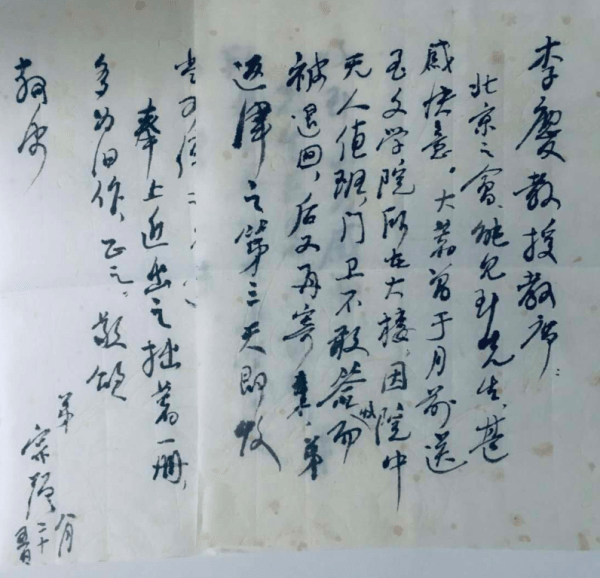 李慶教授教席：
北京之會，能見到先生，甚
感快意。大著曾于月前送
至文学院所在大楼，因院中
无人值班，门卫不敢签收而
被退回，后又再寄来，弟
返津之第三天即收
奉上近出之拙著一册，
多为旧作，正之。敬颂
教安
弟
宗
八月
二十